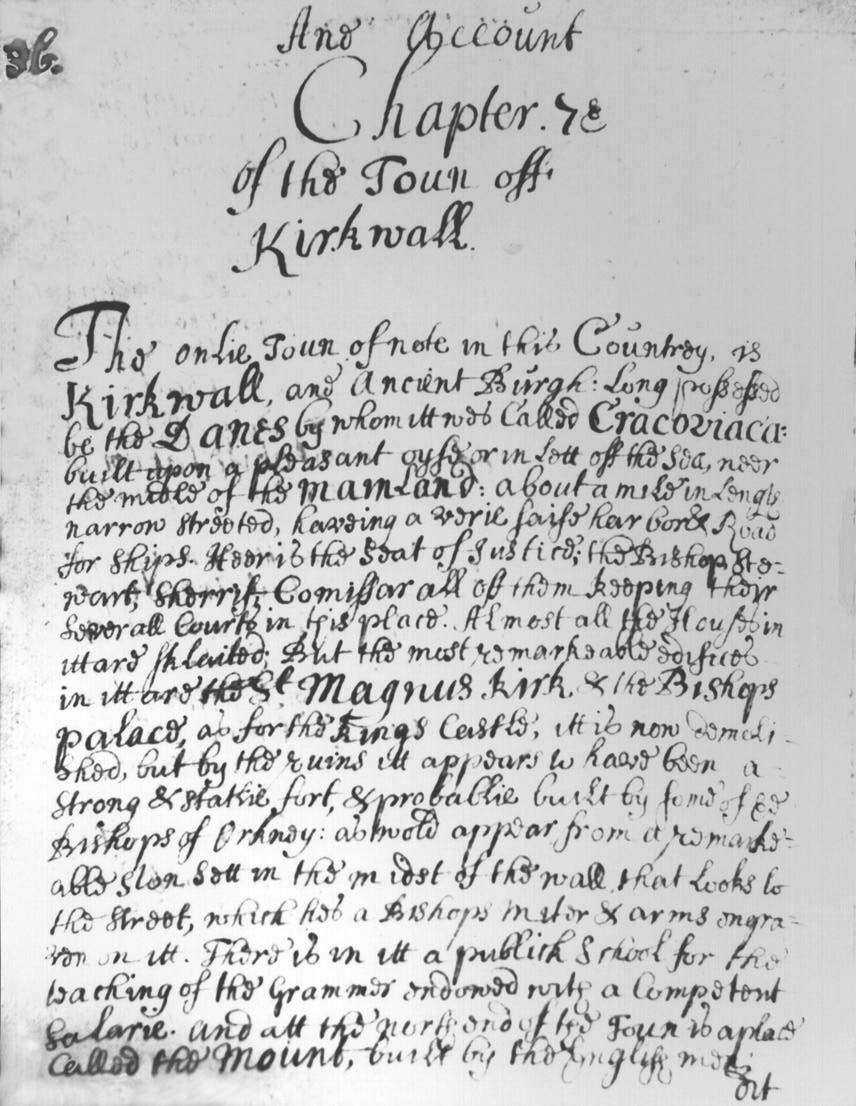 36.
And Account
Chapter. 7e
of the Toun off
Kirkwall.
The onlie Toun of note in this Countrey, is
Kirkwall, and Ancient Burgh: Long possessed
be the Danes by whom itt wes Called Cracoviaca:
built upon a pleasant oyse or in lett off the Sea, neer
the midle of the MainLand: about a mile in length
narrow streeted, haveing a verie saife harbor & Road
for ships. Heer is the Seat of Justice; the Bishop, Ste-
wart, Sherrif, Comissar all off them keeping their
severall Courts in this place. Almost all the Houses in
itt are sklaited; But the most remarkeable edifices
in itt are the St Magnus Kirk & the Bishops
palace, as for the Kings Castle, itt is now demoli-
shed, but by the ruins itt appears to have been a
strong & statlie fort, & probablie built by some of the
Bishops of Orkney: as wold appear from a remarke-
able ston sett in the midst of the wall that Looks to
the street, which hes a Bishops miter & arms engra-
ven on itt. There is in itt a publick School for the
teaching of the Grammer endowed with a Competent
Salarie. and att the north end of the Toun is a place
Called the Mount, built by the English men
itt